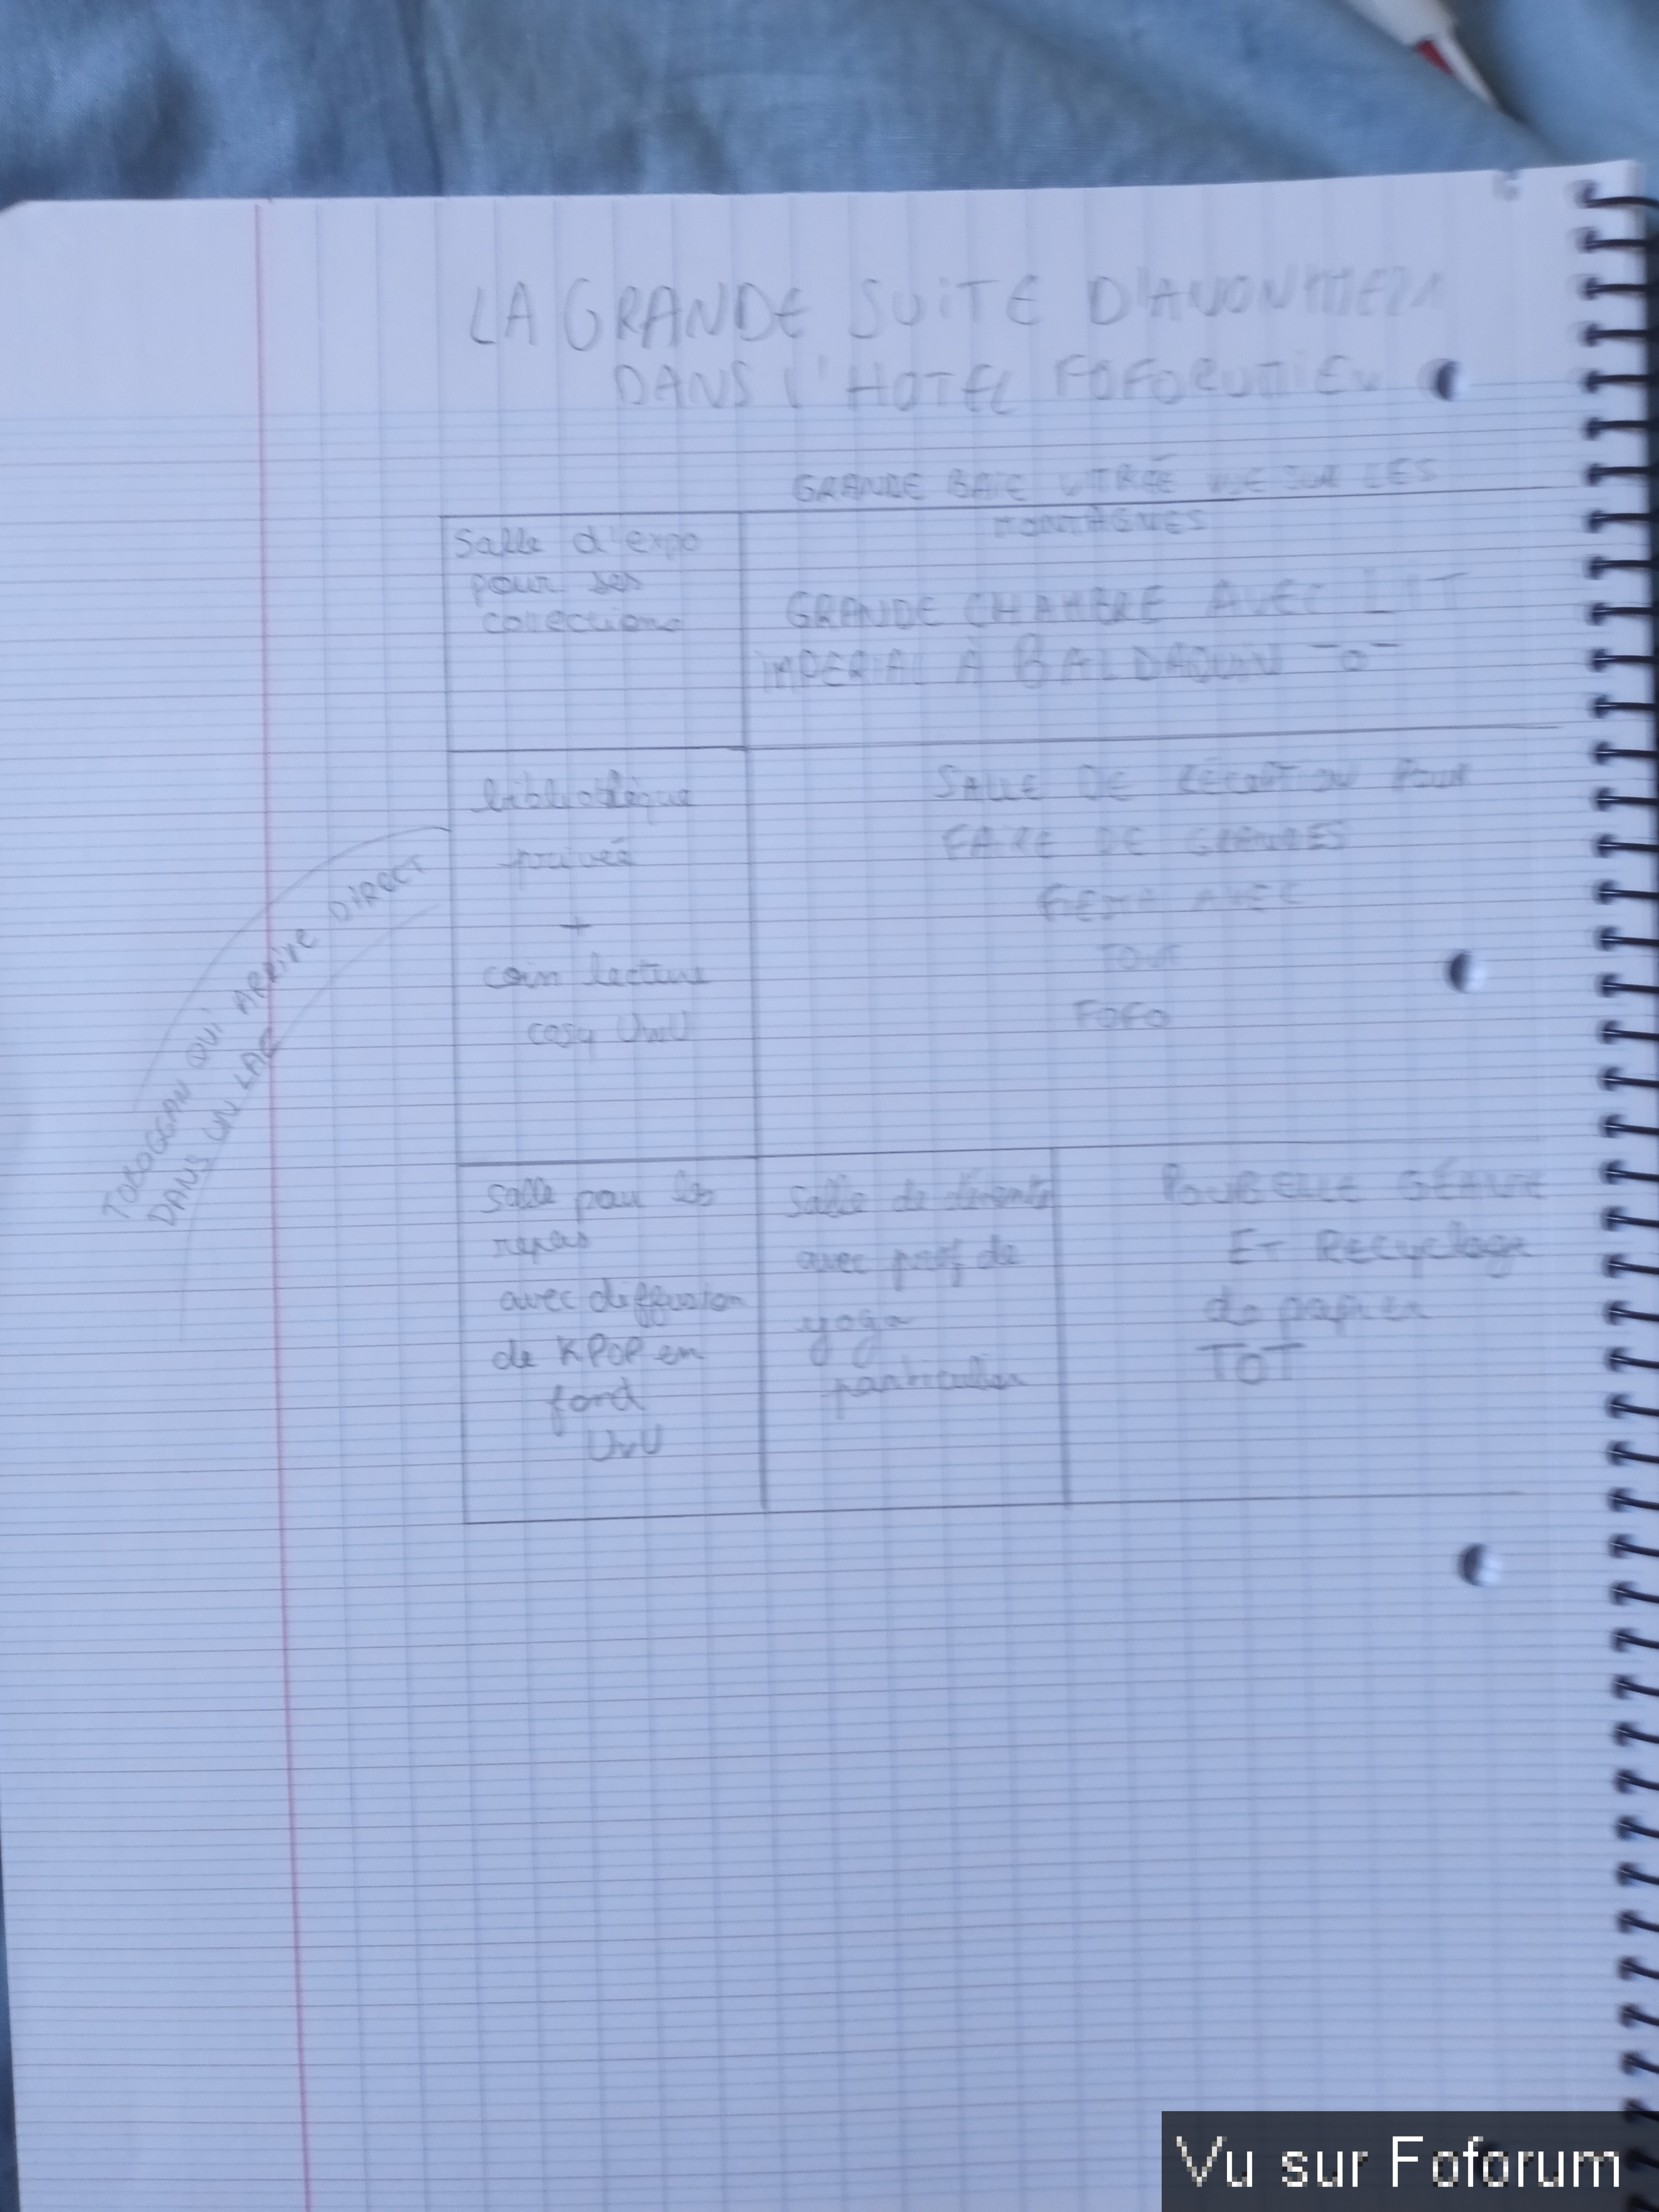 LA GRANDE SUITE
DANS l'HOTEL
GRANDE BAIE VITRÉE VUE SUR LES
MONTAGNES
Salle d'expo
pour ses
collections
GRANDE CHAMBRE AVEC LIT
IMPERIAL À BALDAQUIN ToT
bibliothèque
privée
+
coin lecture
cosy UwU
SALLE DE RÉCEPTION POUR
FAIRE DE GRANDES
AVEC
TOUT
FOFO
TOBOGGAN QUI ARRIVE DIRECT
DANS UN LAC
Salle pour les
repas
avec diffusion
de KPOP en
fond
UwU
Salle de détente
avec prof de
yoga
particulier
POUBELLE GÉANTE
ET Recyclage
de papier
TOT
Vu sur Foforum